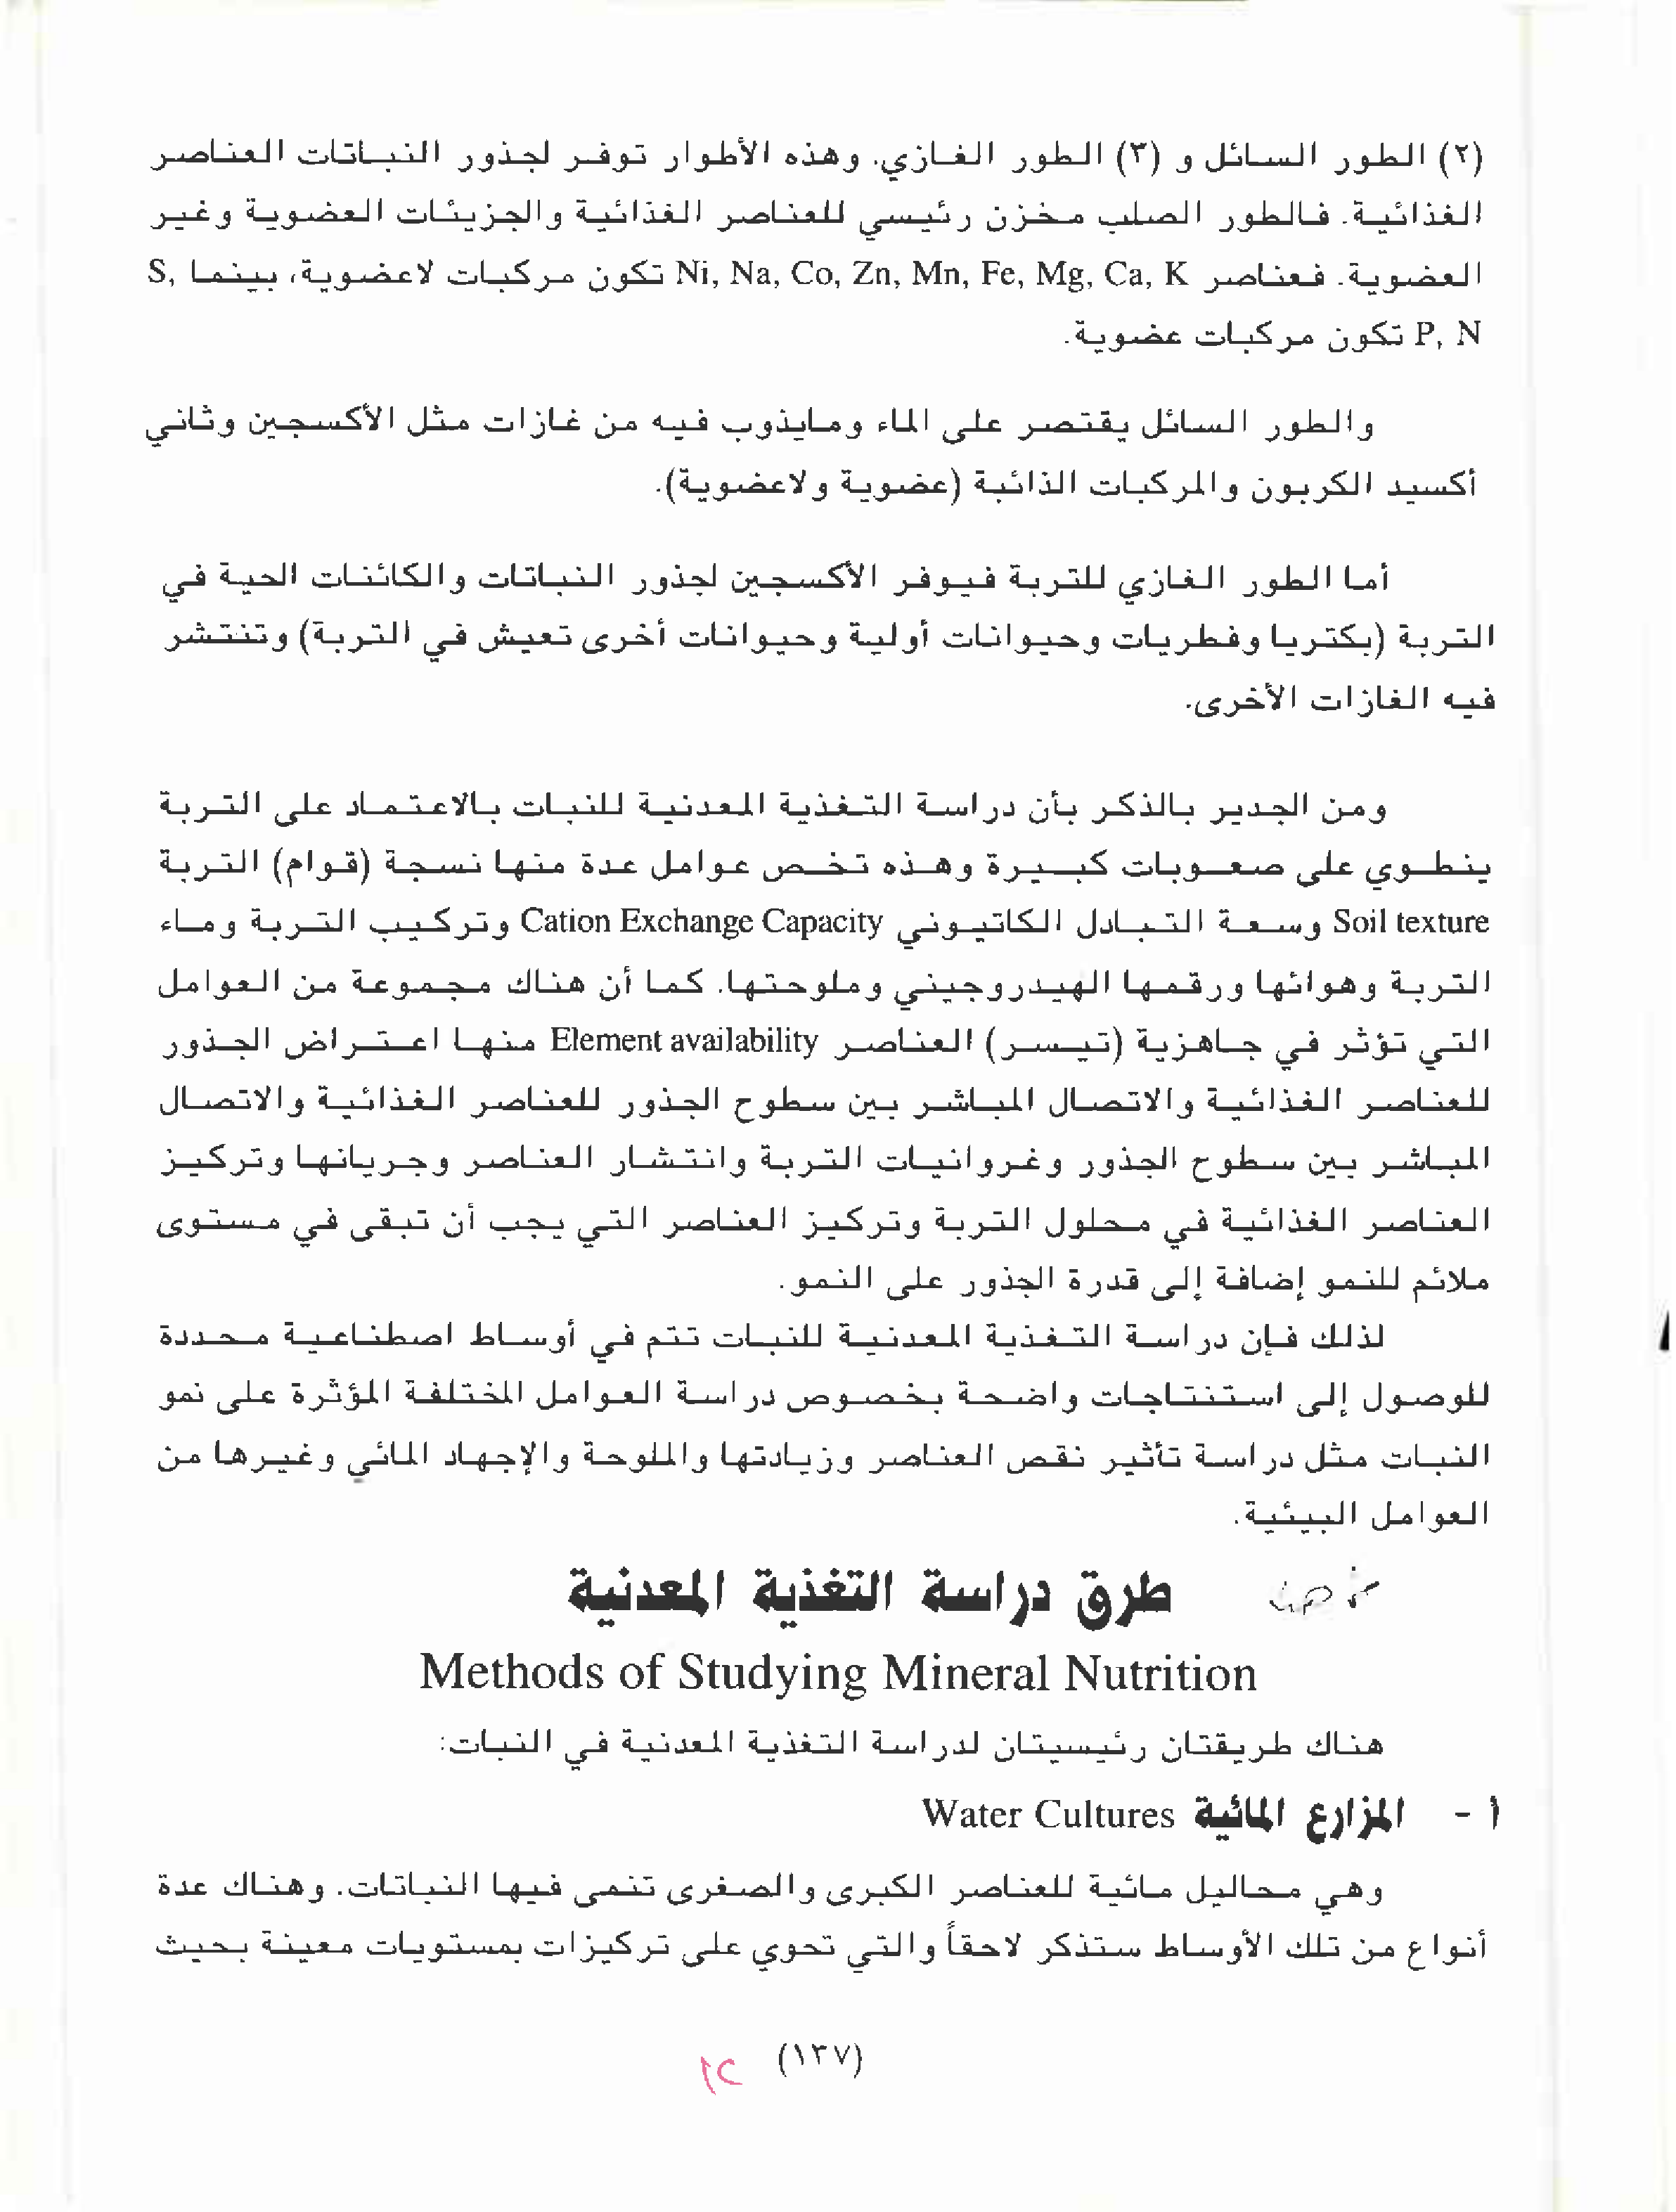 (٢) الطور السائل و (٣) الطور الغازي. وهذه الأطوار توفر لجذور النباتات العناصر
الغذائية. فالطور الصلب مخزن رئيسي للعناصر الغذائية والجزيئات العضوية وغير
العضوية. فعناصر Ni, Na, Co, Zn, Mn, Fe, Mg, Ca, K تكون مركبات لاعضوية، بينما S,
P, N تكون مركبات عضوية.
والطور السائل يقتصر على الماء ومايذوب فيه من غازات مثل الأكسجين وثاني
أكسيد الكربون والمركبات الذائبة (عضوية ولاعضوية).
أما الطور الغازي للتربة فيوفر الأكسجين لجذور النباتات والكائنات الحية في
التربة (بكتريا وفطريات وحيوانات أولية وحيوانات أخرى تعيش في التربة) وتنتشر
فيه الغازات الأخرى.
ومن الجدير بالذكر بأن دراسة التغذية المعدنية للنبات بالاعتماد على التربة
ينطوي على صعوبات كبيرة وهذه تخص عوامل عدة منها نسجة (قوام) التربة
Soil texture وسعة التبادل الكاتيوني Cation Exchange Capacity وتركيب التربة وماء
التربة وهوائها ورقمها الهيدروجيني وملوحتها. كما أن هناك مجموعة من العوامل
التي تؤثر في جاهزية (تيسر) العناصر Element availability منها اعتراض الجذور
للعناصر الغذائية والاتصال المباشر بين سطوح الجذور للعناصر الغذائية والاتصال
المباشر بين سطوح الجذور وغروانيات التربة وانتشار العناصر وجريانها وتركيز
العناصر الغذائية في محلول التربة وتركيز العناصر التي يجب أن تبقى في مستوى
ملائم للنمو إضافة إلى قدرة الجذور على النمو.
لذلك فإن دراسة التغذية المعدنية للنبات تتم في أوساط اصطناعية محددة
للوصول إلى استنتاجات واضحة بخصوص دراسة العوامل المختلفة المؤثرة على نمو
النبات مثل دراسة تأثير نقص العناصر وزيادتها والملوحة والإجهاد المائي وغيرها من
العوامل البيئية.
طرق دراسة التغذية المعدنية
Methods of Studying Mineral Nutrition
هناك طريقتان رئيسيتان لدراسة التغذية المعدنية في النبات:
أ - المزارع المائية Water Cultures
وهي محاليل مائية للعناصر الكبرى والصغرى تنمى فيها النباتات. وهناك عدة
أنواع من تلك الأوساط ستذكر لاحقاً والتي تحوي على تركيزات بمستويات معينة بحيث
(١٣٧)